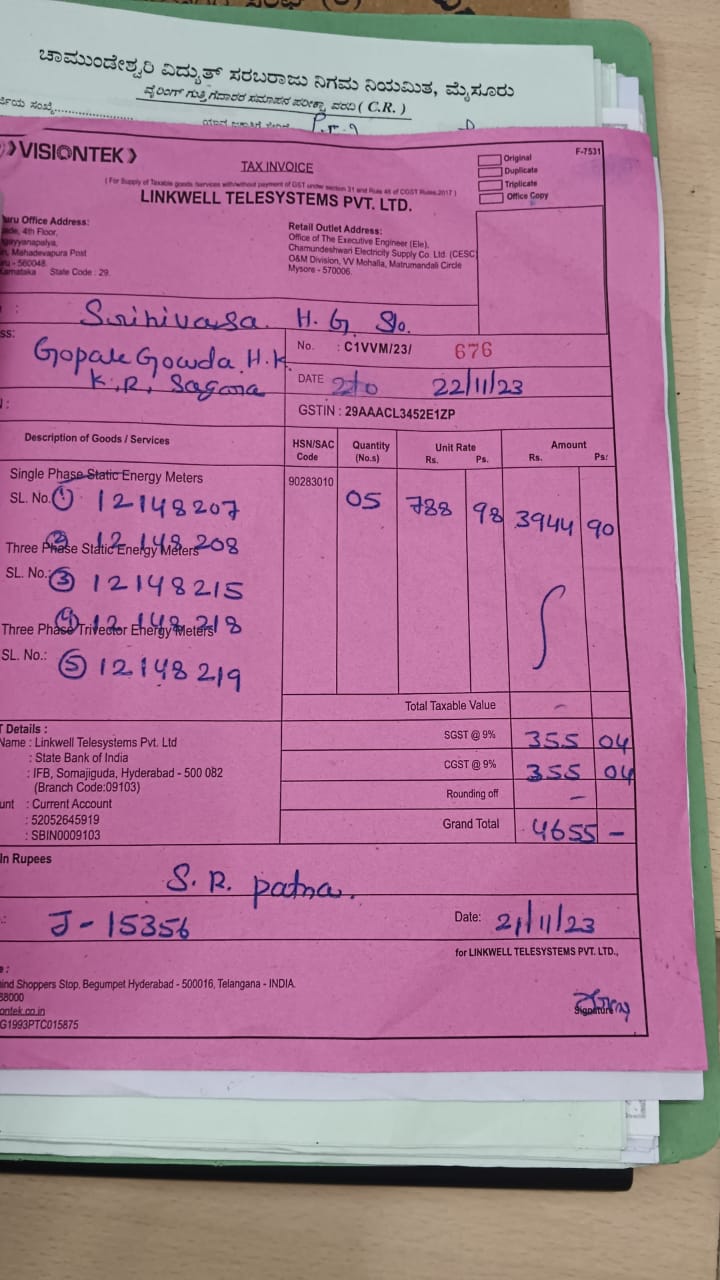 ಚಾಮುಂಡೇಶ್ವರಿ ವಿದ್ಯುತ್ ಸರಬರಾಜು ನಿಗಮ ನಿಯಮಿತ, ಮೈಸೂರು
ವೈರಿಂಗ್ ಗುತ್ತಿಗೆದಾರರ ಸಮಾಪನ ಪರೀಕ್ಷಾ ವರದಿ ( C.R. )
VISIONTEK
F-7531
TAX INVOICE
Original
Duplicate
Triplicate
Office Copy
( For Supply of Taxable goods /services with/without payment of GST under section 31 and Rule 46 of CGST Rules,2017 )
LINKWELL TELESYSTEMS PVT. LTD.
uru Office Address:
ade, 4th Floor,
gayyanapalya,
n, Mahadevapura Post
ru - 560048.
Karnataka State Code : 29.
Retail Outlet Address:
Office of The Executive Engineer (Ele),
Chamundeshwari Electricity Supply Co. Ltd. (CESC
O&M Division, VV Mohalla, Matrumandali Circle
Mysore - 570006.
: Srinivasa. H. G. S/o.
ss: Gopale Gowda. H.K.
K.R. Sagara
No. : C1VVM/23/ 676
DATE 22/11/23
GSTIN : 29AAACL3452E1ZP
Description of Goods / Services HSN/SAC Code Quantity (No.s) Unit Rate Rs. Ps. Amount Rs. Ps:
Single Phase Static Energy Meters 90283010 05 788 98 3944 90
SL. No. ① 12148207
② 12148208
Three Phase Static Energy Meters
SL. No.: ③ 12148215
④ 12148218
Three Phase Trivector Energy Meters
SL. No.: ⑤ 12148219
Total Taxable Value -
T Details :
Name : Linkwell Telesystems Pvt. Ltd
: State Bank of India
: IFB, Somajiguda, Hyderabad - 500 082
(Branch Code:09103)
unt : Current Account
: 52052645919
: SBIN0009103
SGST @ 9% 355 04
CGST @ 9% 355 04
Rounding off -
Grand Total 4655 -
In Rupees
S. R. patna.
.: J - 15356
Date: 21/11/23
for LINKWELL TELESYSTEMS PVT. LTD.,
e :
ind Shoppers Stop, Begumpet Hyderabad - 500016, Telangana - INDIA.
88000
ontek.co.in
G1993PTC015875
Signature